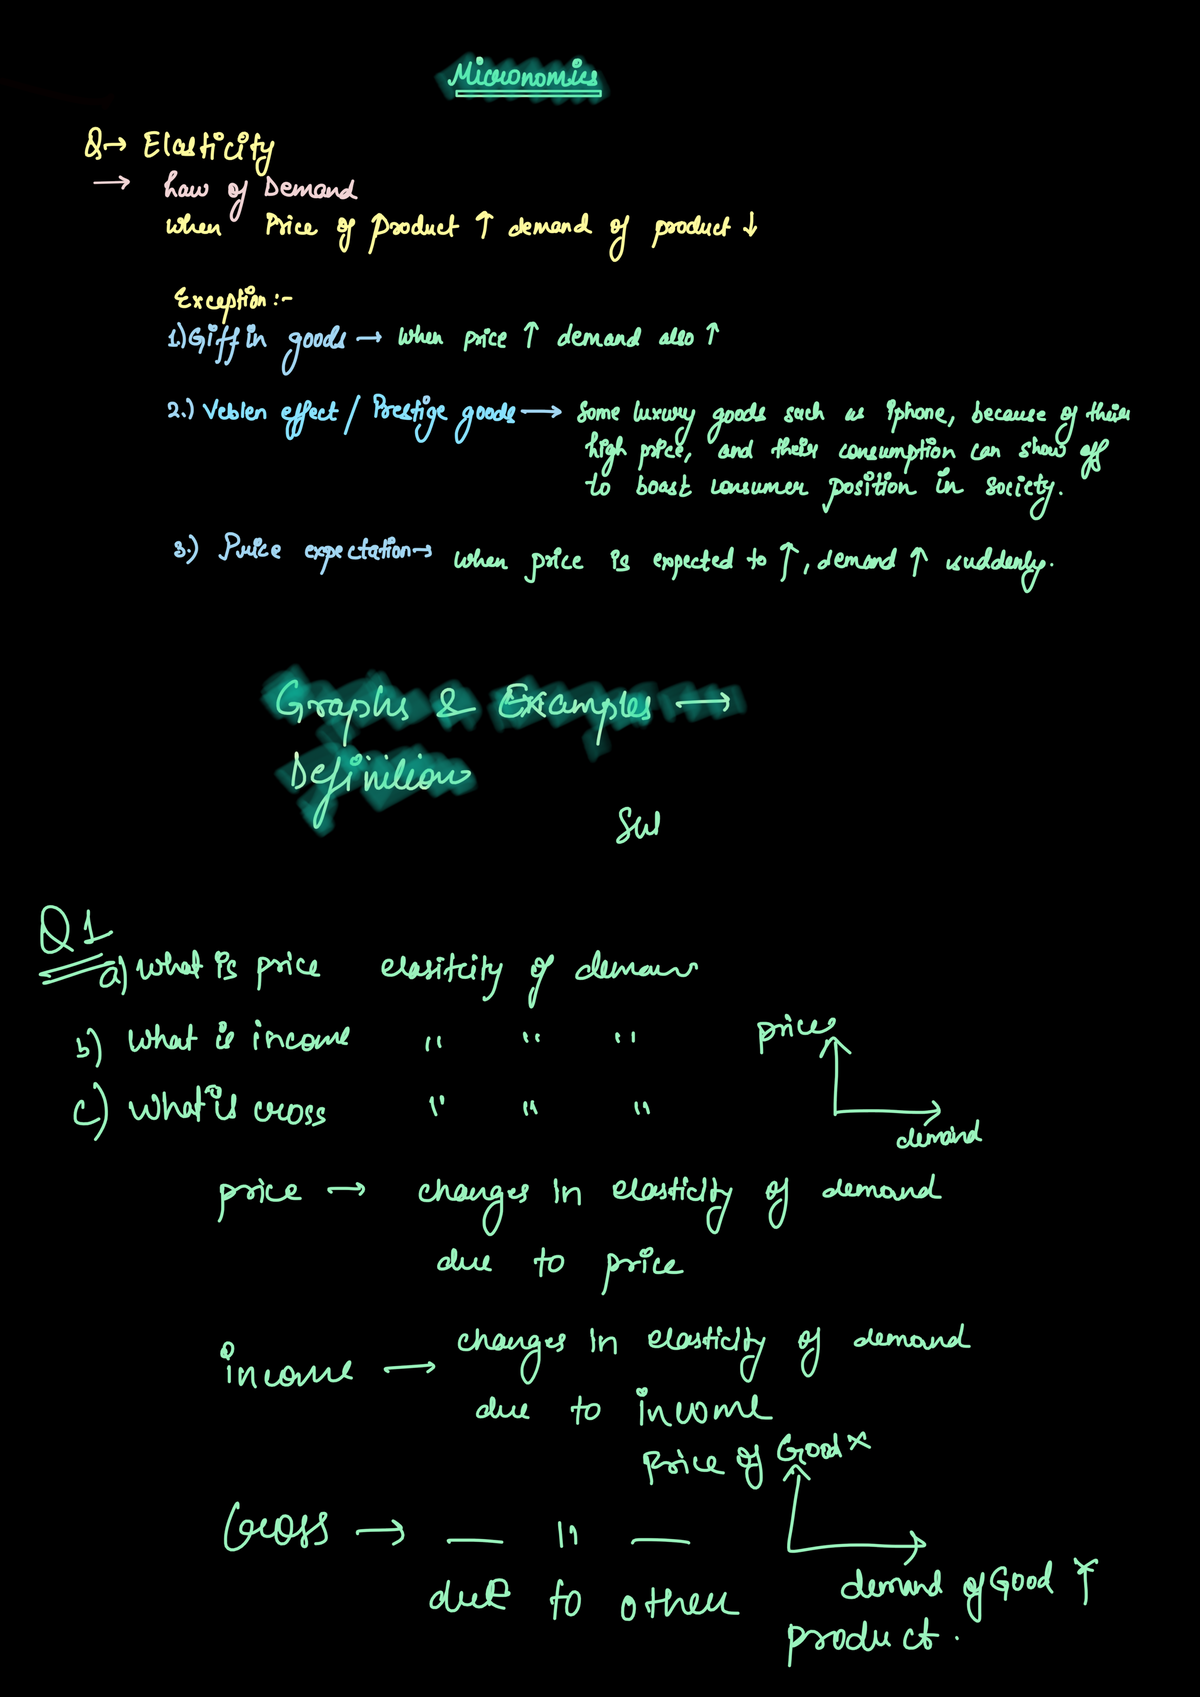 Micronomics
Q→ Elasticity
→ Law of Demand
when Price of Product ↑ demand of product ↓
Exception :-
1.) Giffin goods → When price ↑ demand also ↑
2.) Veblen effect / Prestige goods → Some luxury goods such as iphone, because of their
high price, and their consumption can show off
to boast consumer position in society.
3.) Price expectation → when price is expected to ↑, demand ↑ suddenly.
Graphs & Examples →
Definition
Q1
a) What is price elasitcity of deman
b) What is income " " "
price
c) What is cross " " "
demand
price → changes in elasticity of demand
due to price
income → changes in elasticity of demand
due to income
Price of Good X
Cross → — " —
due to other
demand of Good Y
product.